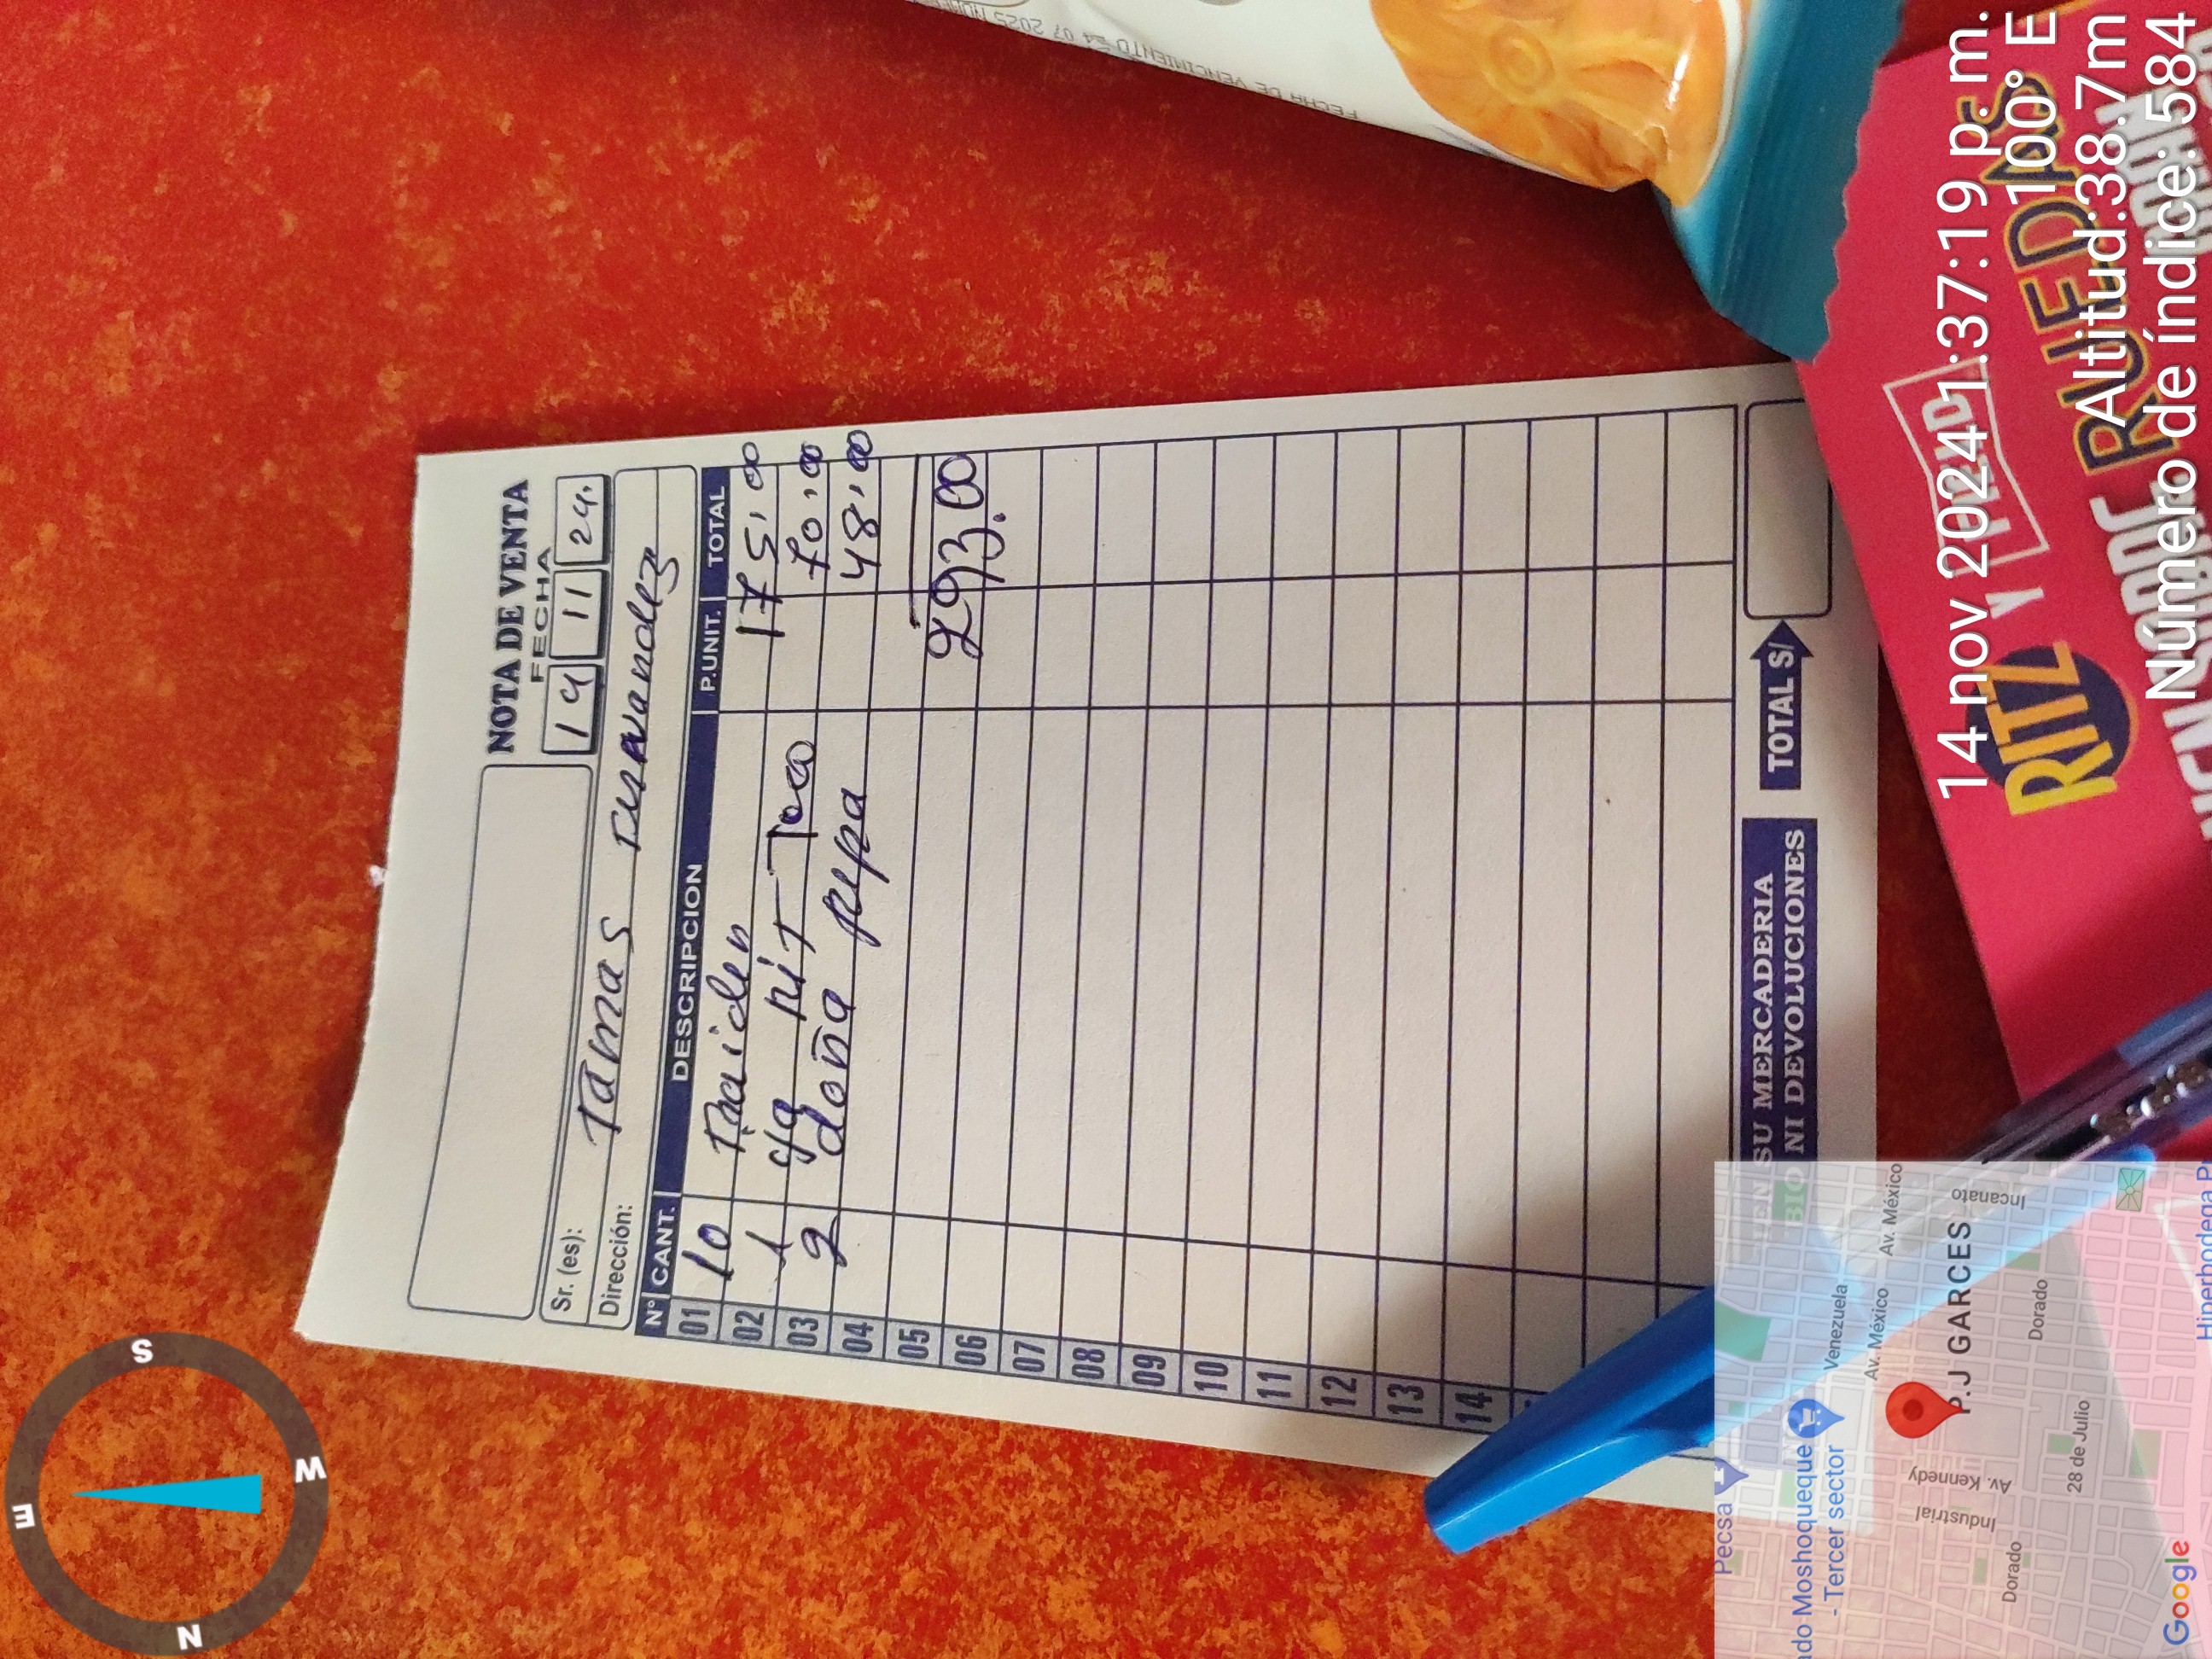 E
S
N
W
NOTA DE VENTA
FECHA
14 11 24.
Sr. (es): Tamas Fernandez
Dirección:
N° CANT. DESCRIPCION P.UNIT. TOTAL
01 10 Traiden 175.00
02 1 cja RIT Taco 70.00
03 2 doña pepa 48.00
04
05 293.00
06
07
08
09
10
11
12
13
14
IEN SU MERCADERIA
BIO NI DEVOLUCIONES
TOTAL S/
FECHA DE VENCIMIENTO 07 2025
RITZ Y FIELD
RUEDAS
Pecsa
ado Moshoqueque
- Tercer sector
Venezuela
Av. México
Av. México
Industrial
Av. Kennedy
P.J GARCES
Incanato
Dorado
Dorado
28 de Julio
Google
Hiperbodega P
14 nov 2024 1:37:19 p. m.
100° E
Altitud:38.7m
Número de índice: 584